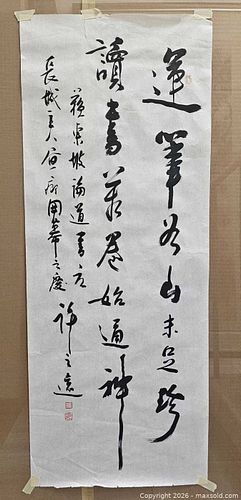 退筆如山未足珍
讀書萬卷始通神
蘇東坡論道書
長城主人畫廊開幕之慶
許之遠
Copyright 2026 - maxsold.com